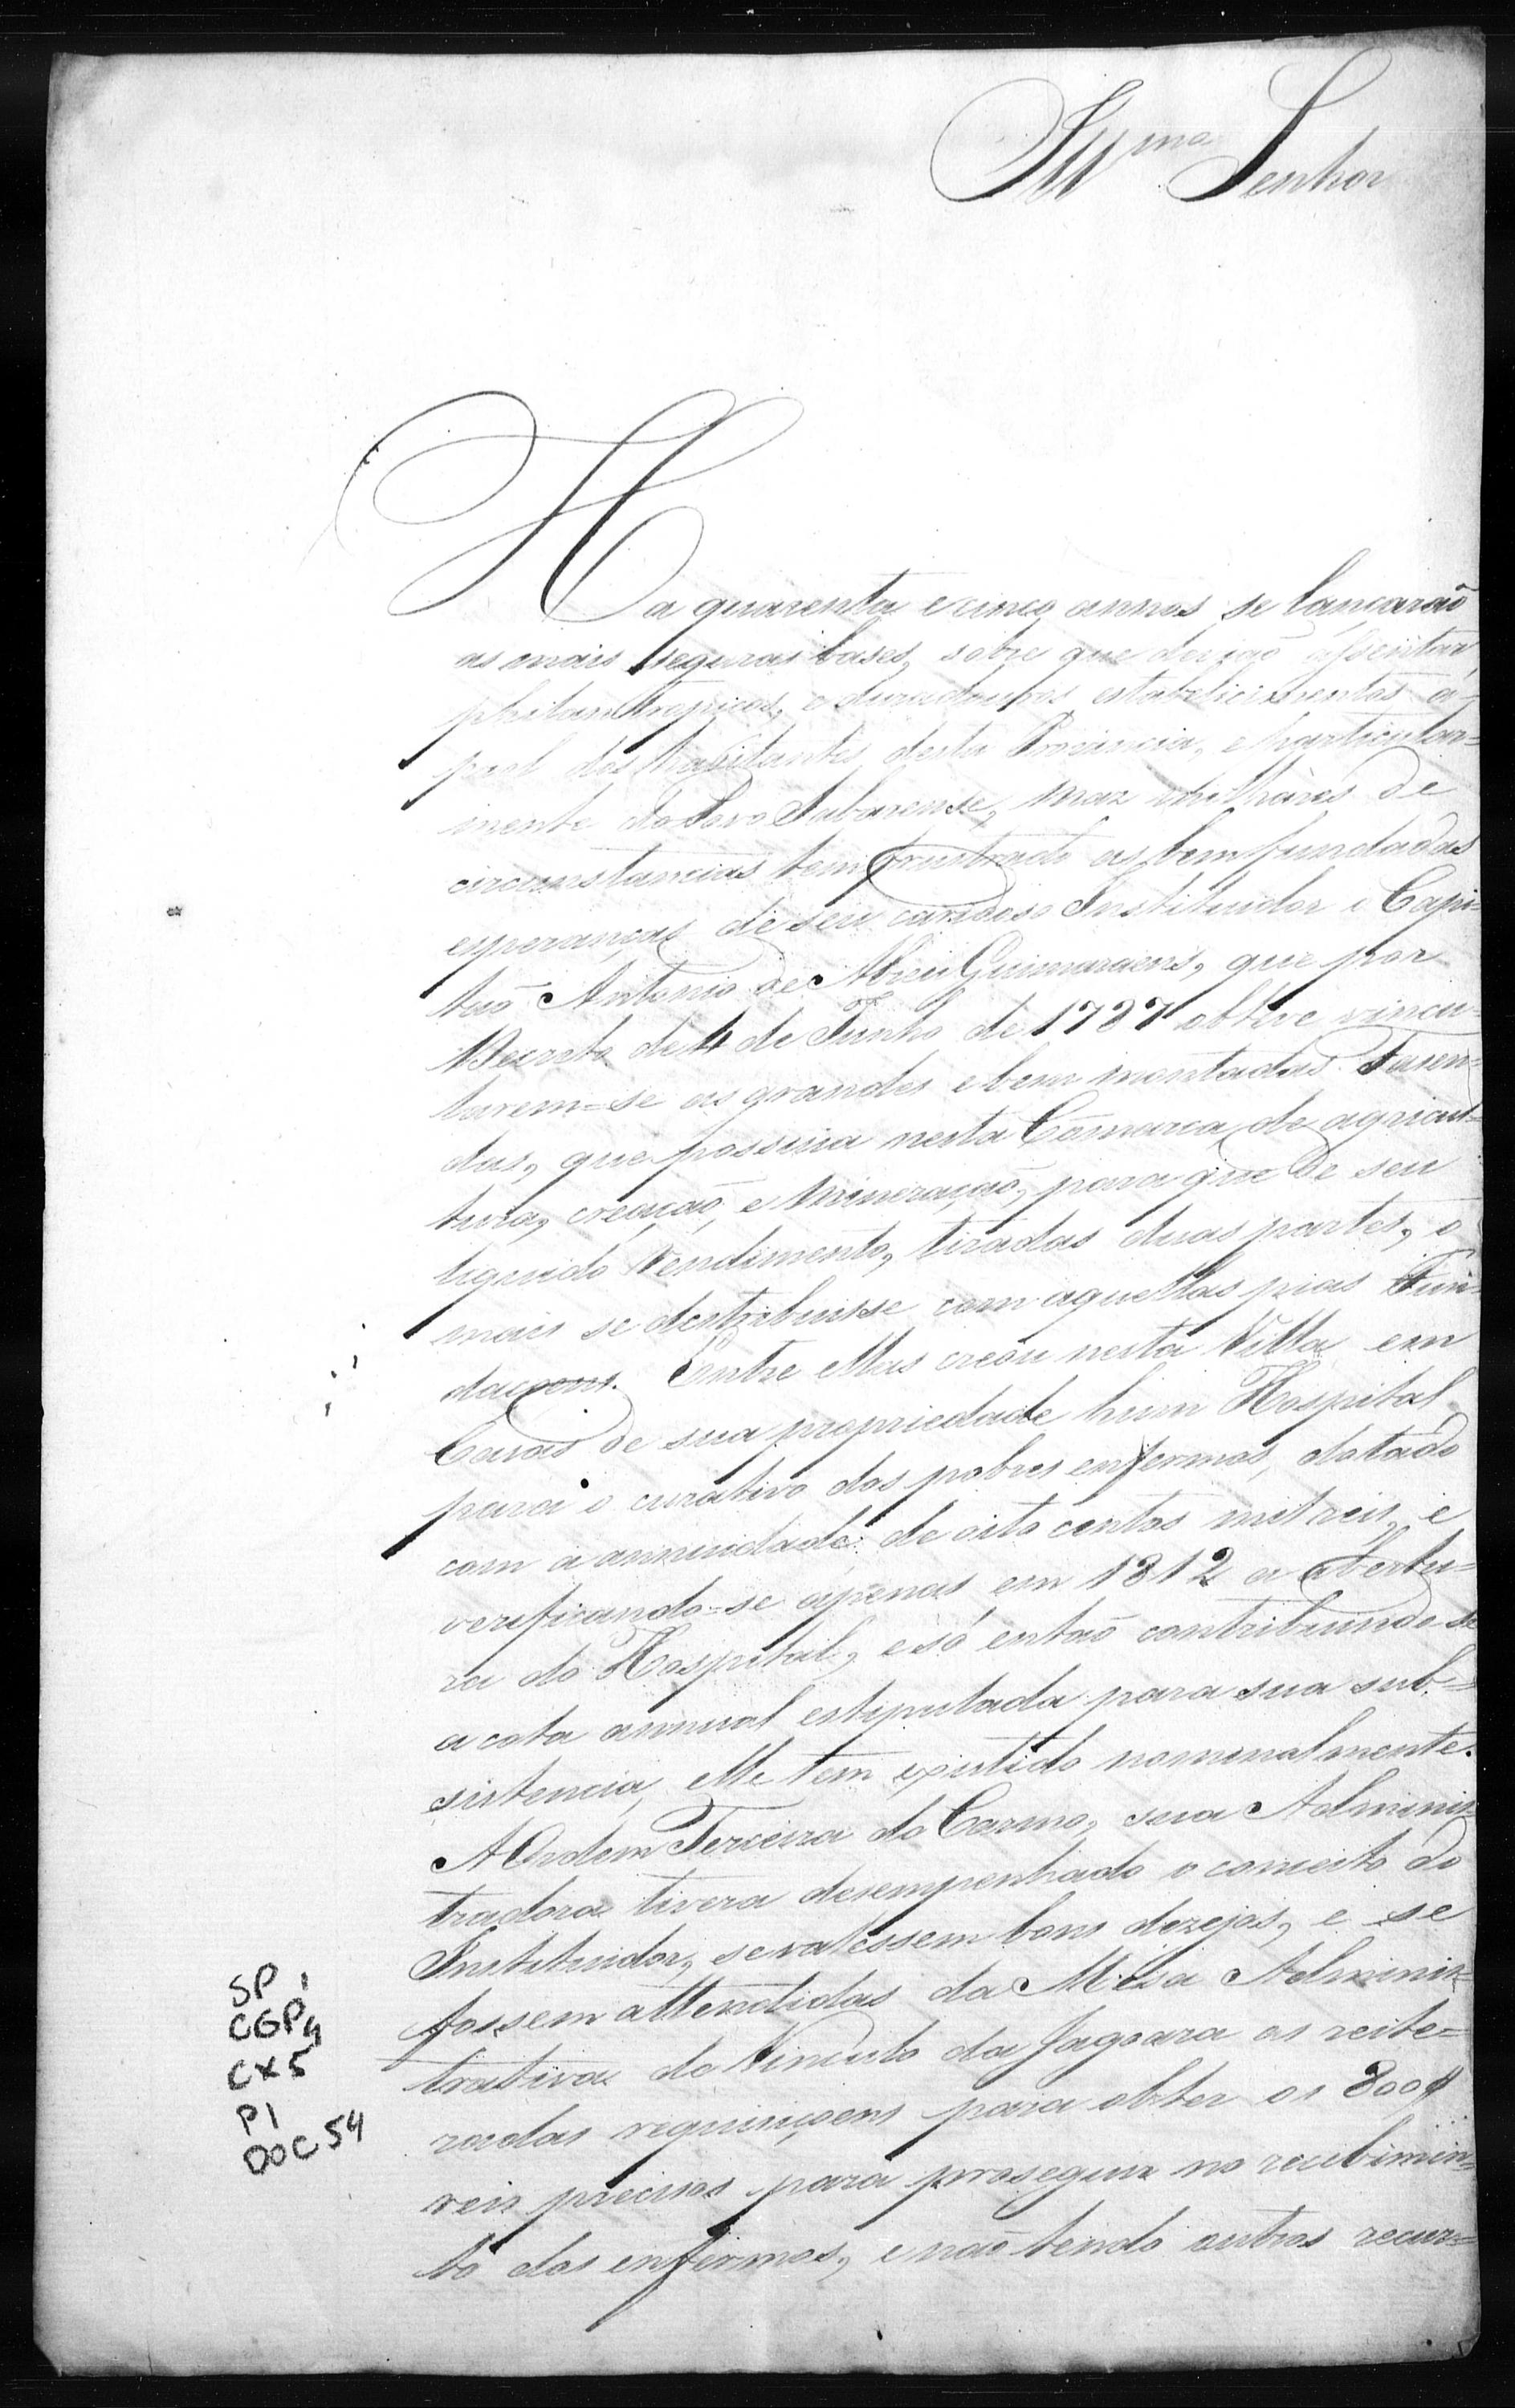 Ill.mo Senhor
Ha quarenta e cinco annos se lançaraõ
as mais seguras bases, sobre que deviaõ assentar
philantropicos, e duradouros estabelicimentos a
prol dos habitantes desta Provincia, e particular=
mente do Povo Sabarense, maz milhares de
circunstancias tem frustrado as bem fundadas
esperanças de seu caridoso Instituidor o Capi=
taõ Antonio de Abreu Guimaraens, que por
Decreto de 4 de Junho de 1787 obteve vincu=
larem=se as grandes e bem montadas Fasen=
das, que possuia nesta Comarca de agricul=
tura, creaçaõ, e Mineraçaõ, para que de seu
liquido rendimento, tiradas duas partes, o
mais se destribuisse com aquellas pias Fun=
daçoens. Entre ellas creou nesta Villa em
Casas de sua propriedade hum Hospital
para o curativo dos pobres enfermos, dotado
com a annuidade de oito centos mil reis, e
verificando=se apenas em 1812 a abertu=
ra do Hospital, e só entaõ contribuindo-se
a cota annual estipulada para sua sub=
sistencia, elle tem existido nominalmente.
A Ordem Terceira do Carmo, sua Adminis=
tradora tivera desempenhado o conceito do
Instituidor, se valessem bons dezejos, e se
fossem attendidas da Mesa Adminis=
trativa do Vinculo da Jagoara as reite=
radas requisiçoens para obter os 800$
reis precisos para proseguir no recebimen=
to dos enfermos, e naõ tendo outros recur=
SP 1
CGP 4
CX 5
P1
DOC 54